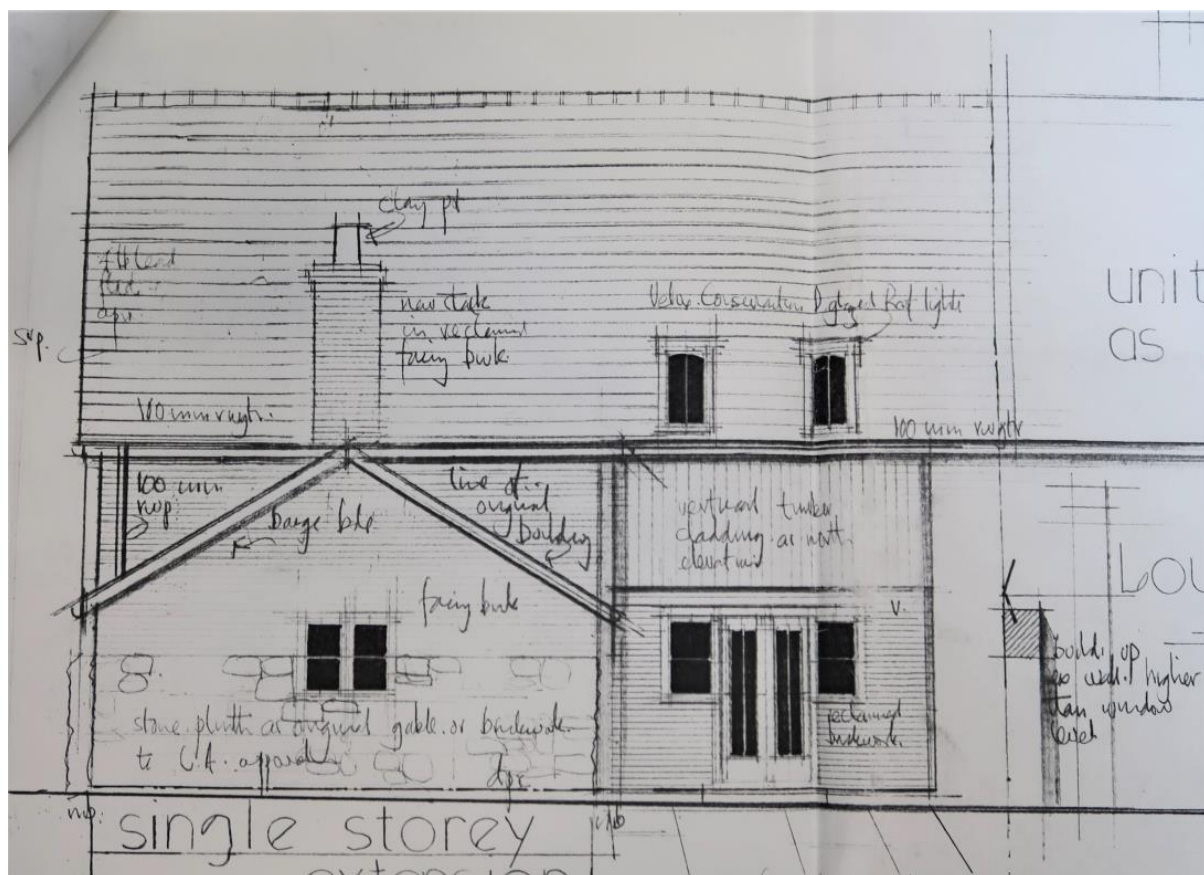 clay pt
new stack
in reclaimed
facing brick.
Velux Conservation D glazed Roof lights
unit
as
svp.
100 mm rwgtr.
100 mm rwgtr
100 mm
rwp
barge bde
line of
original
building
vertical timber
cladding as north
elevation
facing brick
V.
LOU
build up
wall higher
than window
level
reclaimed
brickwork.
stone plinth as original gable or brickwork
to L.A. approval
dpc
single storey
extension